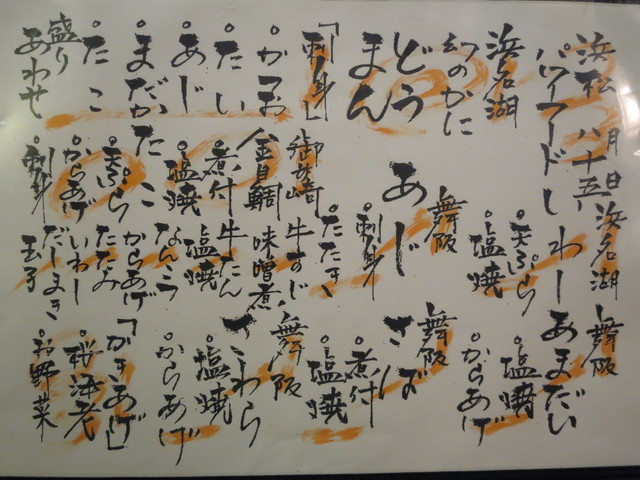 浜松
パワーフードしわー
八月十五日
浜名湖
幻のかに
どうまん
「刺身」
かつお
たい
あじ
まだか
たこ
盛りあわせ
浜名湖
天ぷら
塩焼
舞阪
あじ
刺身
たたき
御前崎
金目鯛
煮付
塩焼
たこ
天ぷら
からあげ
刺身
舞阪
あまだい
塩焼
からあげ
舞阪
さば
煮付
塩焼
舞阪
さわら
塩焼
からあげ
牛すじ
味噌煮
牛たん
塩焼
なんこつ
からあげ
いわし
たたみ
だしまき
玉子
「かきあげ」
桜海老
お野菜